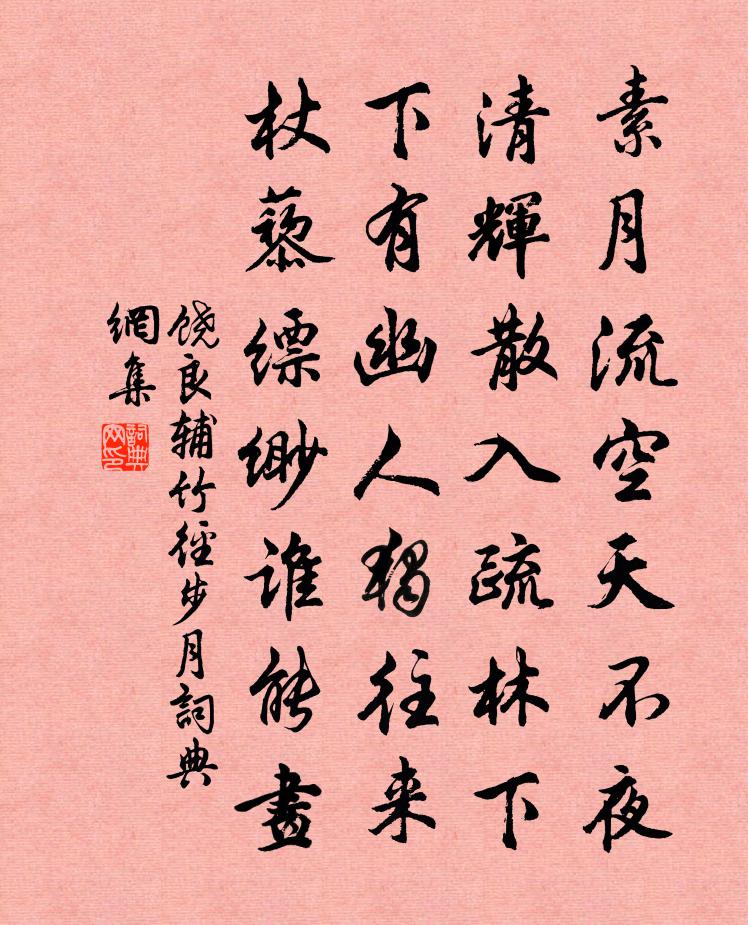 素月流空天不夜
清輝散入疏林下
下有幽人獨往来
杖藜缥缈谁能畫
饶良辅竹徑步月詞典
網集
詞典
网印